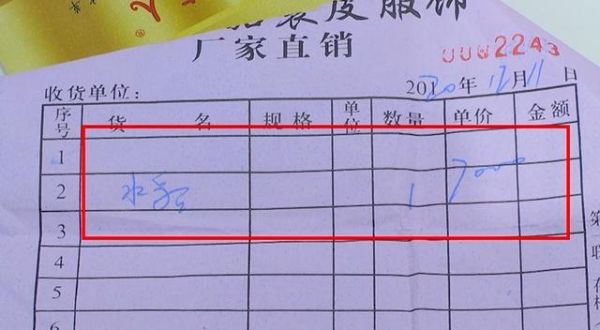 裘皮服饰
厂家直销
0002243
收货单位：
20 年 12月11日
序号 货 名 规格 单位 数量 单价 金额
1
2 水貂 1 7000
3
4
5
6
第
联